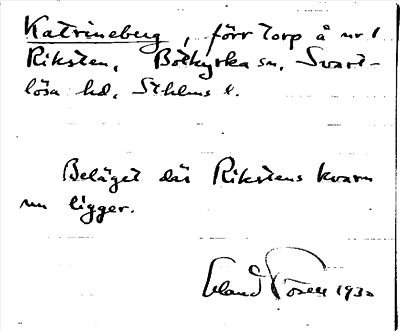 Katrineberg, förr torp å nr 1
Riksten, Botkyrka sn, Svart-
lösa hd, Sthlms l.
Beläget där Rikstens kvarn
nu ligger.
Erland Rosell 1930